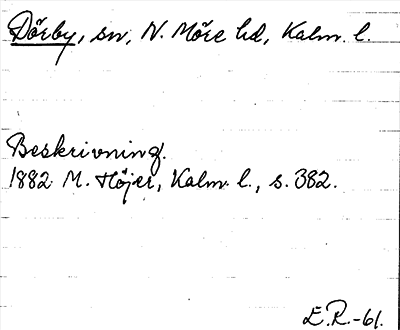 Dörby, sn, N. Möre hd, Kalm. l.
Beskrivning.
1882 M. Höjer, Kalm. l., s. 382.
E.R.-61.